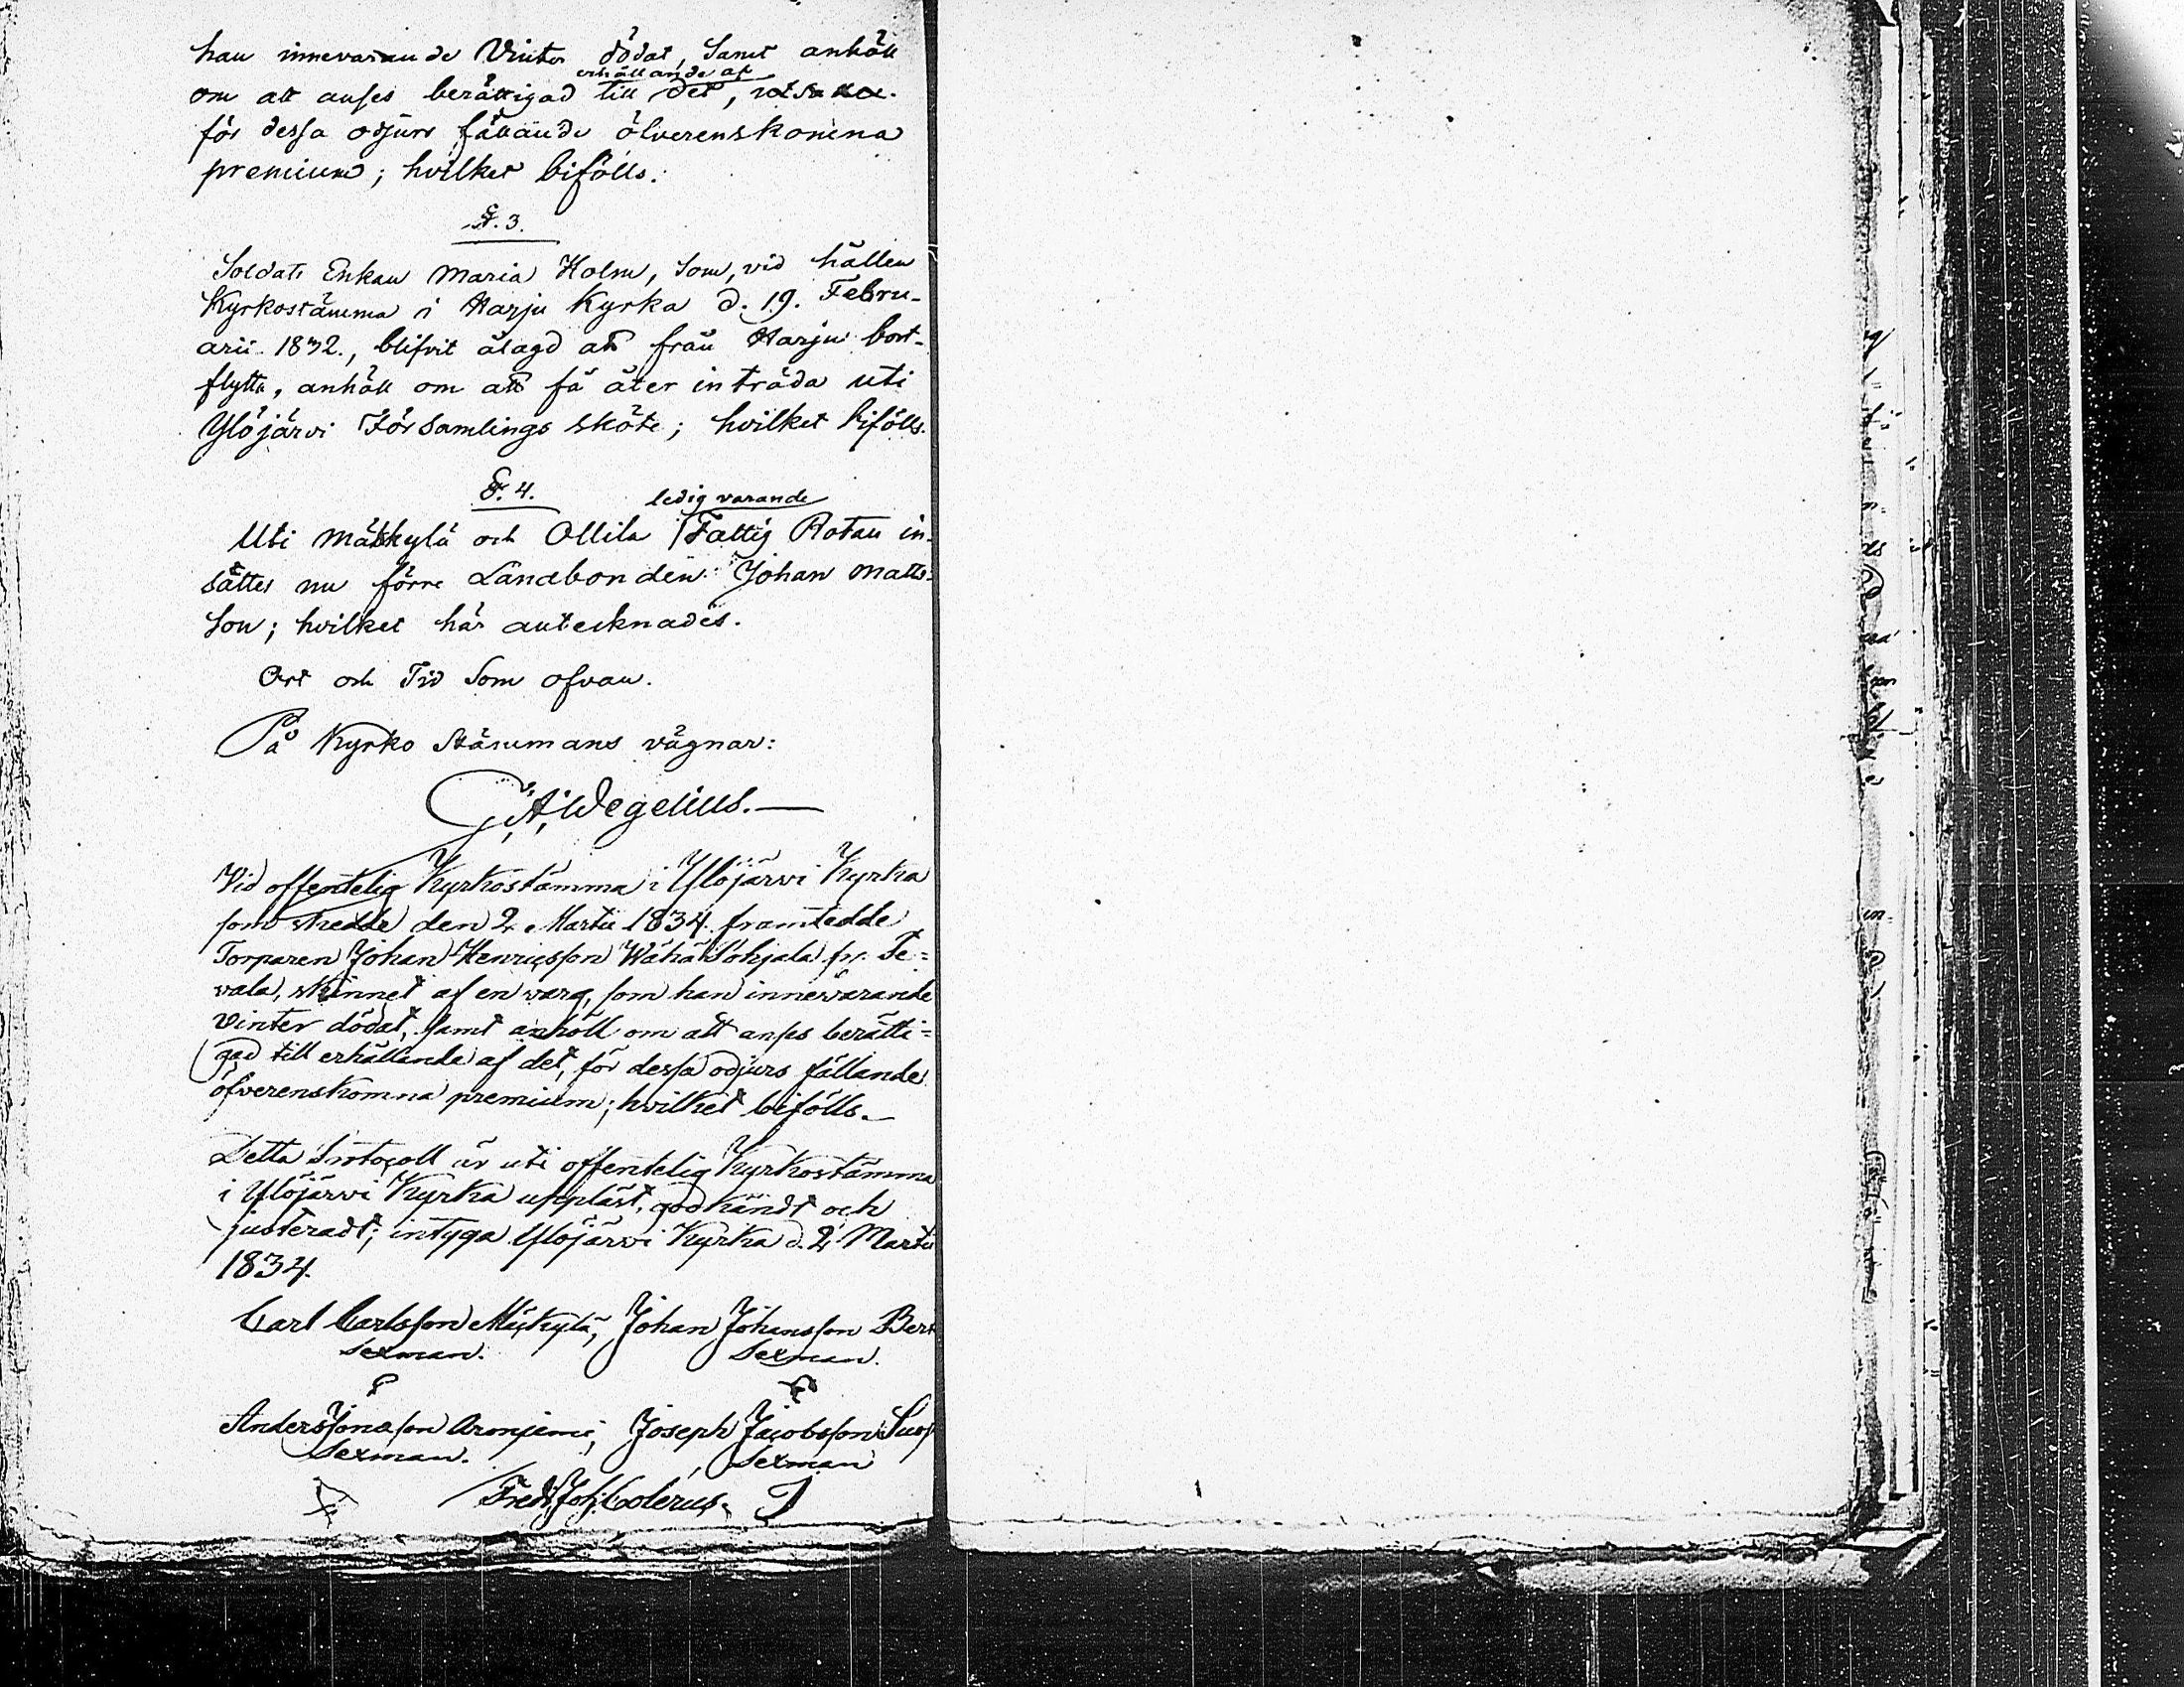 han innevarande Vinter dödat, samt anhöll
erhållande af
om att anses berättigad till det,
för dessa odjurs fällande öfverenskomna
premium; hvilket bifölls.
§. 3.
Soldats Enkan Maria Holm, som, vid hållen
Kyrkostämma i Harju Kyrka d. 19. Febru-
arii 1832., blifvit ålagd att från Harju bort-
flytta, anhöll om att få åter inträda uti
Ylöjärvi Församlings sköte; hvilket bifölls.
§. 4.
ledig varande
Uti Mäkkylä och Ollila Fattig Rotan in-
sättes nu förre Landbonden Johan Matts-
son; hvilket här antecknades.
Ort och Tid som ofvan.
På Kyrko Stämmans vägnar:
G. A. Wegelius.
Vid offentelig Kyrkostämma i Ylöjärvi Kyrka
som skedde den 2 Martii 1834. framtedde
Torparen Johan Henricsson Wähä Sohjala fr. Te=
vala, skinnet af en varg, som han innevarande
Vinter dödat, samt anhöll om att anses berätti=
gad till erhållande af det, för dessa odjurs fällande
öfverenskomna premium; hvilket bifölls.
Detta Protocoll är uti offentelig Kyrkostämma
i Ylöjärvi Kyrka uppläst, godkändt och
justeradt; intyga Ylöjärvi Kyrka d. 2 Martii
1834.
Carl Carlsson Mäkkylä, Johan Johansson Ber
Sexman. Sexman.
Anders Jonasson Joseph Jacobsson
Sexman. Sexman
Fredr. Joh. Colerus.